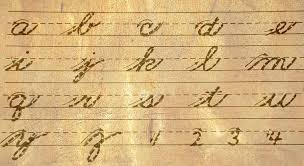 a b c d e
i j k l m
q r s t u
y z 1 2 3 4